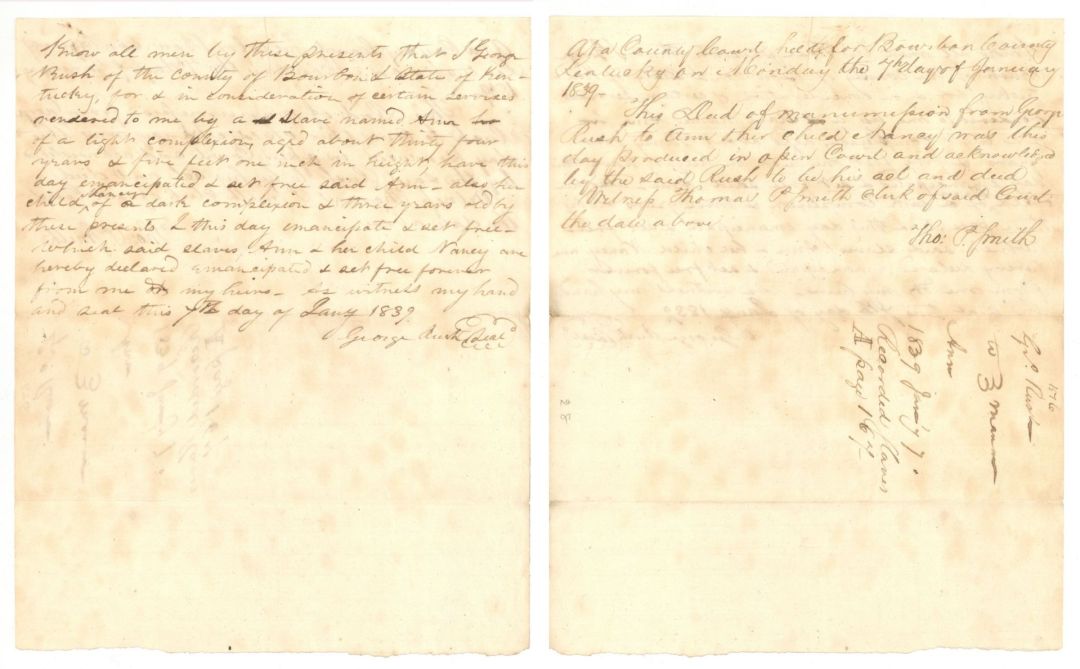 Know all men by these presents that I George
Rush of the county of Bourbon & State of Ken-
tucky, for & in consideration of certain services
rendered to me by a slave named Ann
of a light complexion, aged about thirty four
years & five feet one inch in height, have this
day emancipated & set free said Ann - also her
child Nancy of a dark complexion & three years old by
these presents I this day emancipate & set free -
Which said slaves, Ann & her child Nancy are
hereby declared emancipated & set free forever
from me & my heirs - As witness my hand
and seal this 7th day of Jany 1839
George Rush Seal
At a County Court held for Bourbon County
Kentucky on Monday the 7th day of January
1839 -
This Deed of manumission from George
Rush to Ann & her child Nancy was this
day produced in open Court and acknowledged
by the said Rush to be his act and deed
Witness Thomas P. Smith Clerk of said Court
the date above
Tho: P. Smith
Geo Rush
to 3 manu
Ann
1839 Jany 7.
Recorded Slaves
A page 167
28